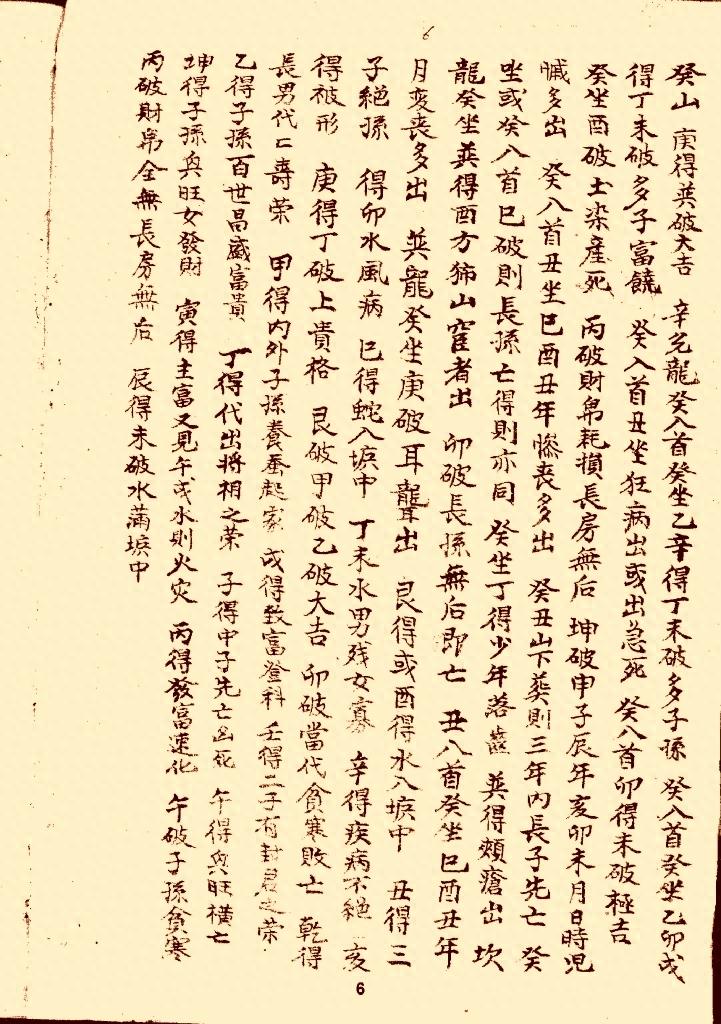 6
癸山 庚得巽破大吉 辛兌龍癸入首癸坐乙辛得丁未破多子孫 癸入首癸坐乙卯戌
得丁未破多子富饒 癸入首丑坐狂病出或出急死 癸入首卯得未破極吉
癸坐酉破土染産死 丙破財帛耗損長房無后 坤破申子辰年亥卯未月日時児
喊多出 癸入首丑坐巳酉丑年慘喪多出 癸丑山下葬則三年内長子先亡 癸
坐或癸入首巳破則長孫亡得則亦同 癸坐丁得少年落齒 巽得頰瘡出 坎
龍癸坐巽得酉方狵山窺者出 卯破長孫無后即亡 丑入首癸坐巳酉丑年
月変喪多出 巽龍癸坐庚破耳聾出 艮得或酉得水入塚中 丑得三
子絶孫 得卯水風病 巳得蛇入塚中 丁未水男残女寡 辛得疾病不絶 亥
得被形 庚得丁破上貴格 艮破甲破乙破大吉 卯破當代貧寒敗亡 乾得
長男代亡壽荣 甲得内外子孫養蚕起家 戌得致富登科 壬得二子有封君之荣
乙得子孫百世昌盛富貴 丁得代出将相之荣 子得中子先亡凶死 午得與旺横亡
坤得子孫與旺女發財 寅得主富又見午戌水則火灾 丙得發富速化 午破子孫貧寒
丙破財帛全無長房無后 辰得未破水滿塚中
6